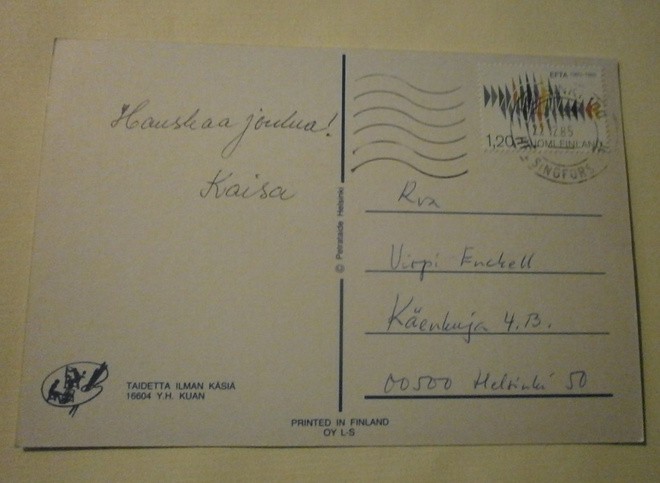 Hauskaa joulua!
Kaisa
TAIDETTA ILMAN KÄSIÄ
16604 Y.H. KUAN
© Petrataide Helsinki
PRINTED IN FINLAND
OY L-S
EFTA
1,20
SUOMI FINLAND
22.12.85
SINGFORS
Rva
Virpi Enckell
Käenkuja 4.B.
00500 Helsinki 50